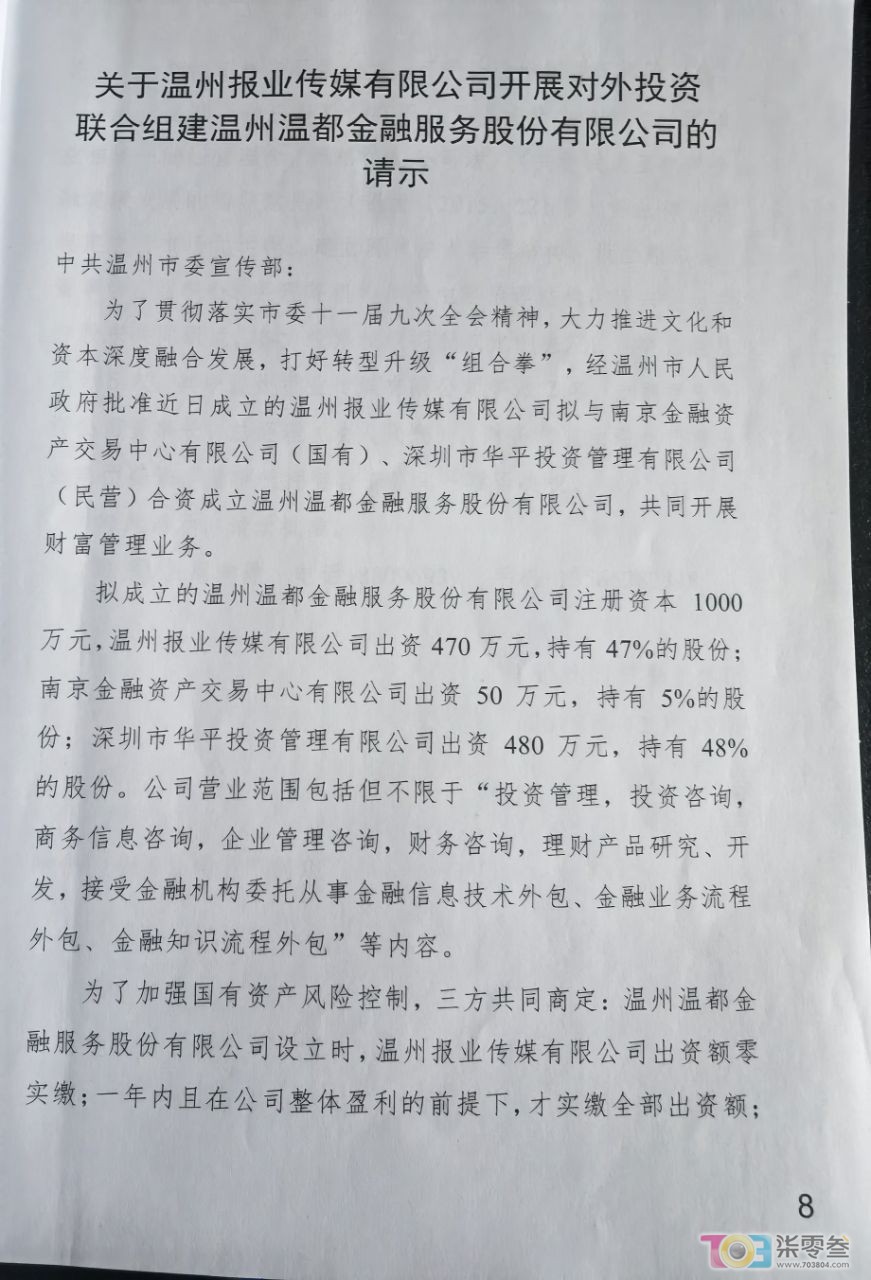 关于温州报业传媒有限公司开展对外投资
联合组建温州温都金融服务股份有限公司的
请示
中共温州市委宣传部：
为了贯彻落实市委十一届九次全会精神，大力推进文化和
资本深度融合发展，打好转型升级“组合拳”，经温州市人民
政府批准近日成立的温州报业传媒有限公司拟与南京金融资
产交易中心有限公司（国有）、深圳市华平投资管理有限公司
（民营）合资成立温州温都金融服务股份有限公司，共同开展
财富管理业务。
拟成立的温州温都金融服务股份有限公司注册资本 1000
万元，温州报业传媒有限公司出资 470 万元，持有 47%的股份；
南京金融资产交易中心有限公司出资 50 万元，持有 5%的股
份；深圳市华平投资管理有限公司出资 480 万元，持有 48%
的股份。公司营业范围包括但不限于“投资管理，投资咨询，
商务信息咨询，企业管理咨询，财务咨询，理财产品研究、开
发，接受金融机构委托从事金融信息技术外包、金融业务流程
外包、金融知识流程外包”等内容。
为了加强国有资产风险控制，三方共同商定：温州温都金
融服务股份有限公司设立时，温州报业传媒有限公司出资额零
实缴；一年内且在公司整体盈利的前提下，才实缴全部出资额；
8
703 柒零叁
www.703804.com